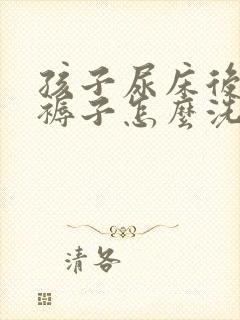 孩子尿床後
褥子怎麼洗
清各